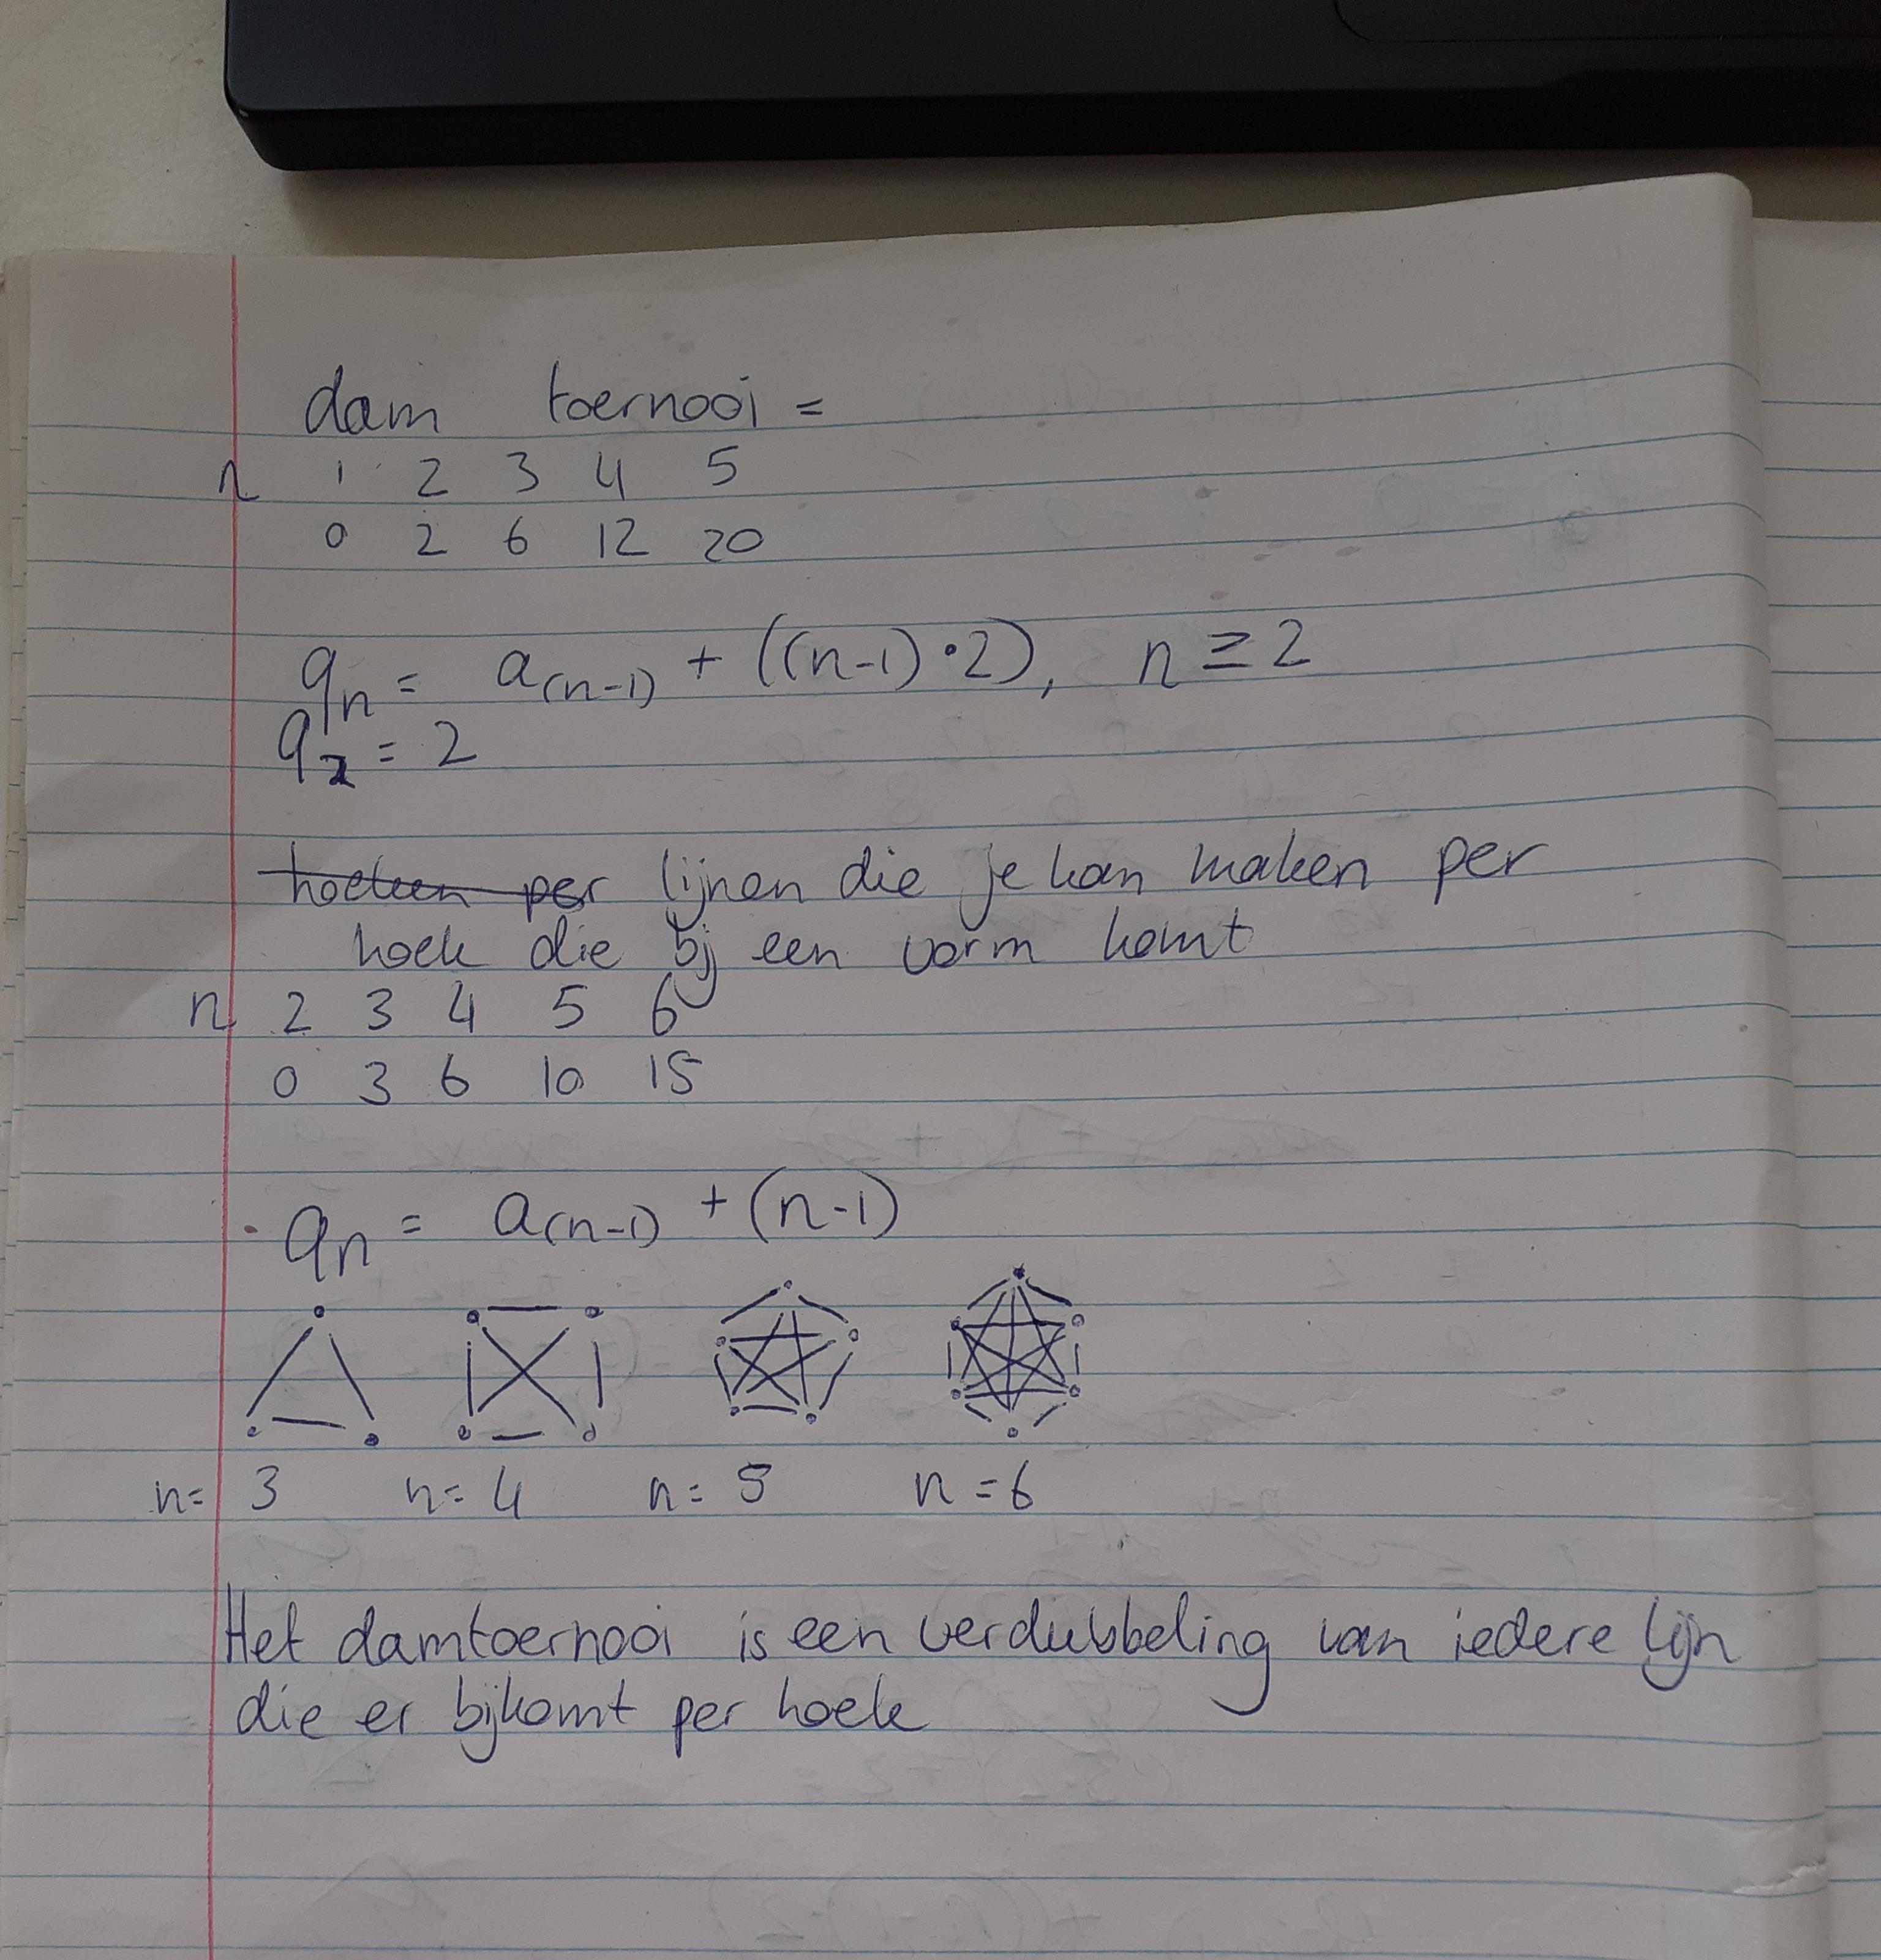 dam toernooi =
n 1 2 3 4 5
0 2 6 12 20
a_n = a_(n-1) + ((n-1)·2), n ≥ 2
a_2 = 2
hoeken per lijnen die je kan maken per
hoek die bij een vorm komt
n 2 3 4 5 6
0 3 6 10 15
a_n = a_(n-1) + (n-1)
n= 3 n= 4 n= 5 n = 6
Het damtoernooi is een verdubbeling van iedere lijn
die er bijkomt per hoek